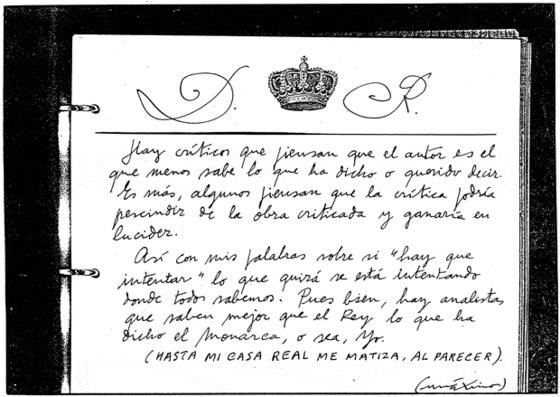 D. R.
Hay críticos que piensan que el autor es el
que menos sabe lo que ha dicho o querido decir.
Es más, algunos piensan que la crítica podría
prescindir de la obra criticada y ganaría en
lucidez.
Así con mis palabras sobre si "hay que
intentar" lo que quizá se está intentando
donde todos sabemos. Pues bien, hay analistas
que saben mejor que el Rey lo que ha
dicho el Monarca, o sea, Yo.
(HASTA MI CASA REAL ME MATIZA, AL PARECER).
(máximo)